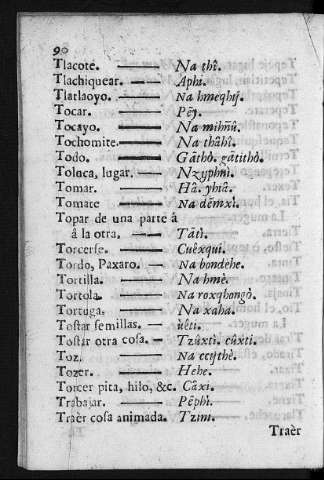 90
Tlacote. Na thî.
Tlachiquear. Aphi.
Tlatlaoyo. Na hmeqhij.
Tocar. Pëÿ.
Tocayo. Na mihñû.
Tochomite. Na thâhî.
Todo. Gâthò. gâtithò.
Toluca, lugar. Nzyphnì.
Tomar. Hâ. yhiâ.
Tomate Na dëmxì.
Topar de una parte â
â la otra, Tâtì.
Torcerse. Cuêxqui.
Tordo, Paxaro. Na bondehe.
Tortilla. Na hmè.
Tortola. Na roxqhongò.
Tortuga. Na xaha.
Tostar semillas. ûêti.
Tostár otra cosa. Tzûxtì. cûxti.
Toz. Na thè.
Tozer. Hehe.
Torcer pita, hilo, &c. Câxi.
Trabajar. Pëphî.
Traèr cosa animada. Tzini.
Traèr